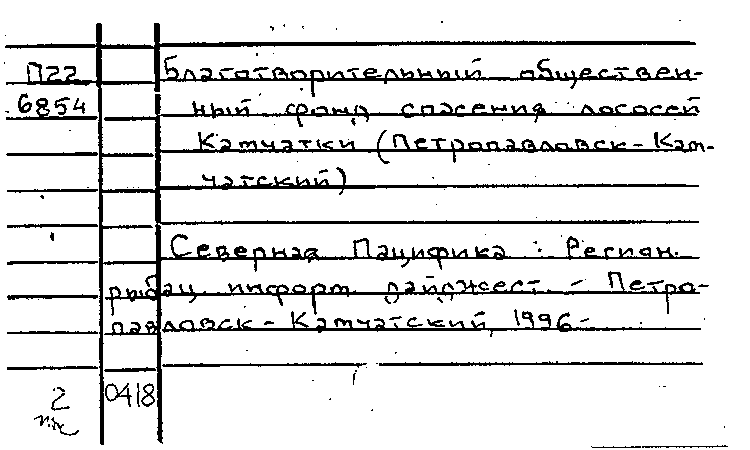 П22
6854
Благотворительный обществен-
ный фонд спасения лососей
Камчатки (Петропавловск-Кам-
чатский)
Северная Пацифика : Регион.
рыбац. информ. дайджест. - Петро-
павловск-Камчатский, 1996-
2 0418